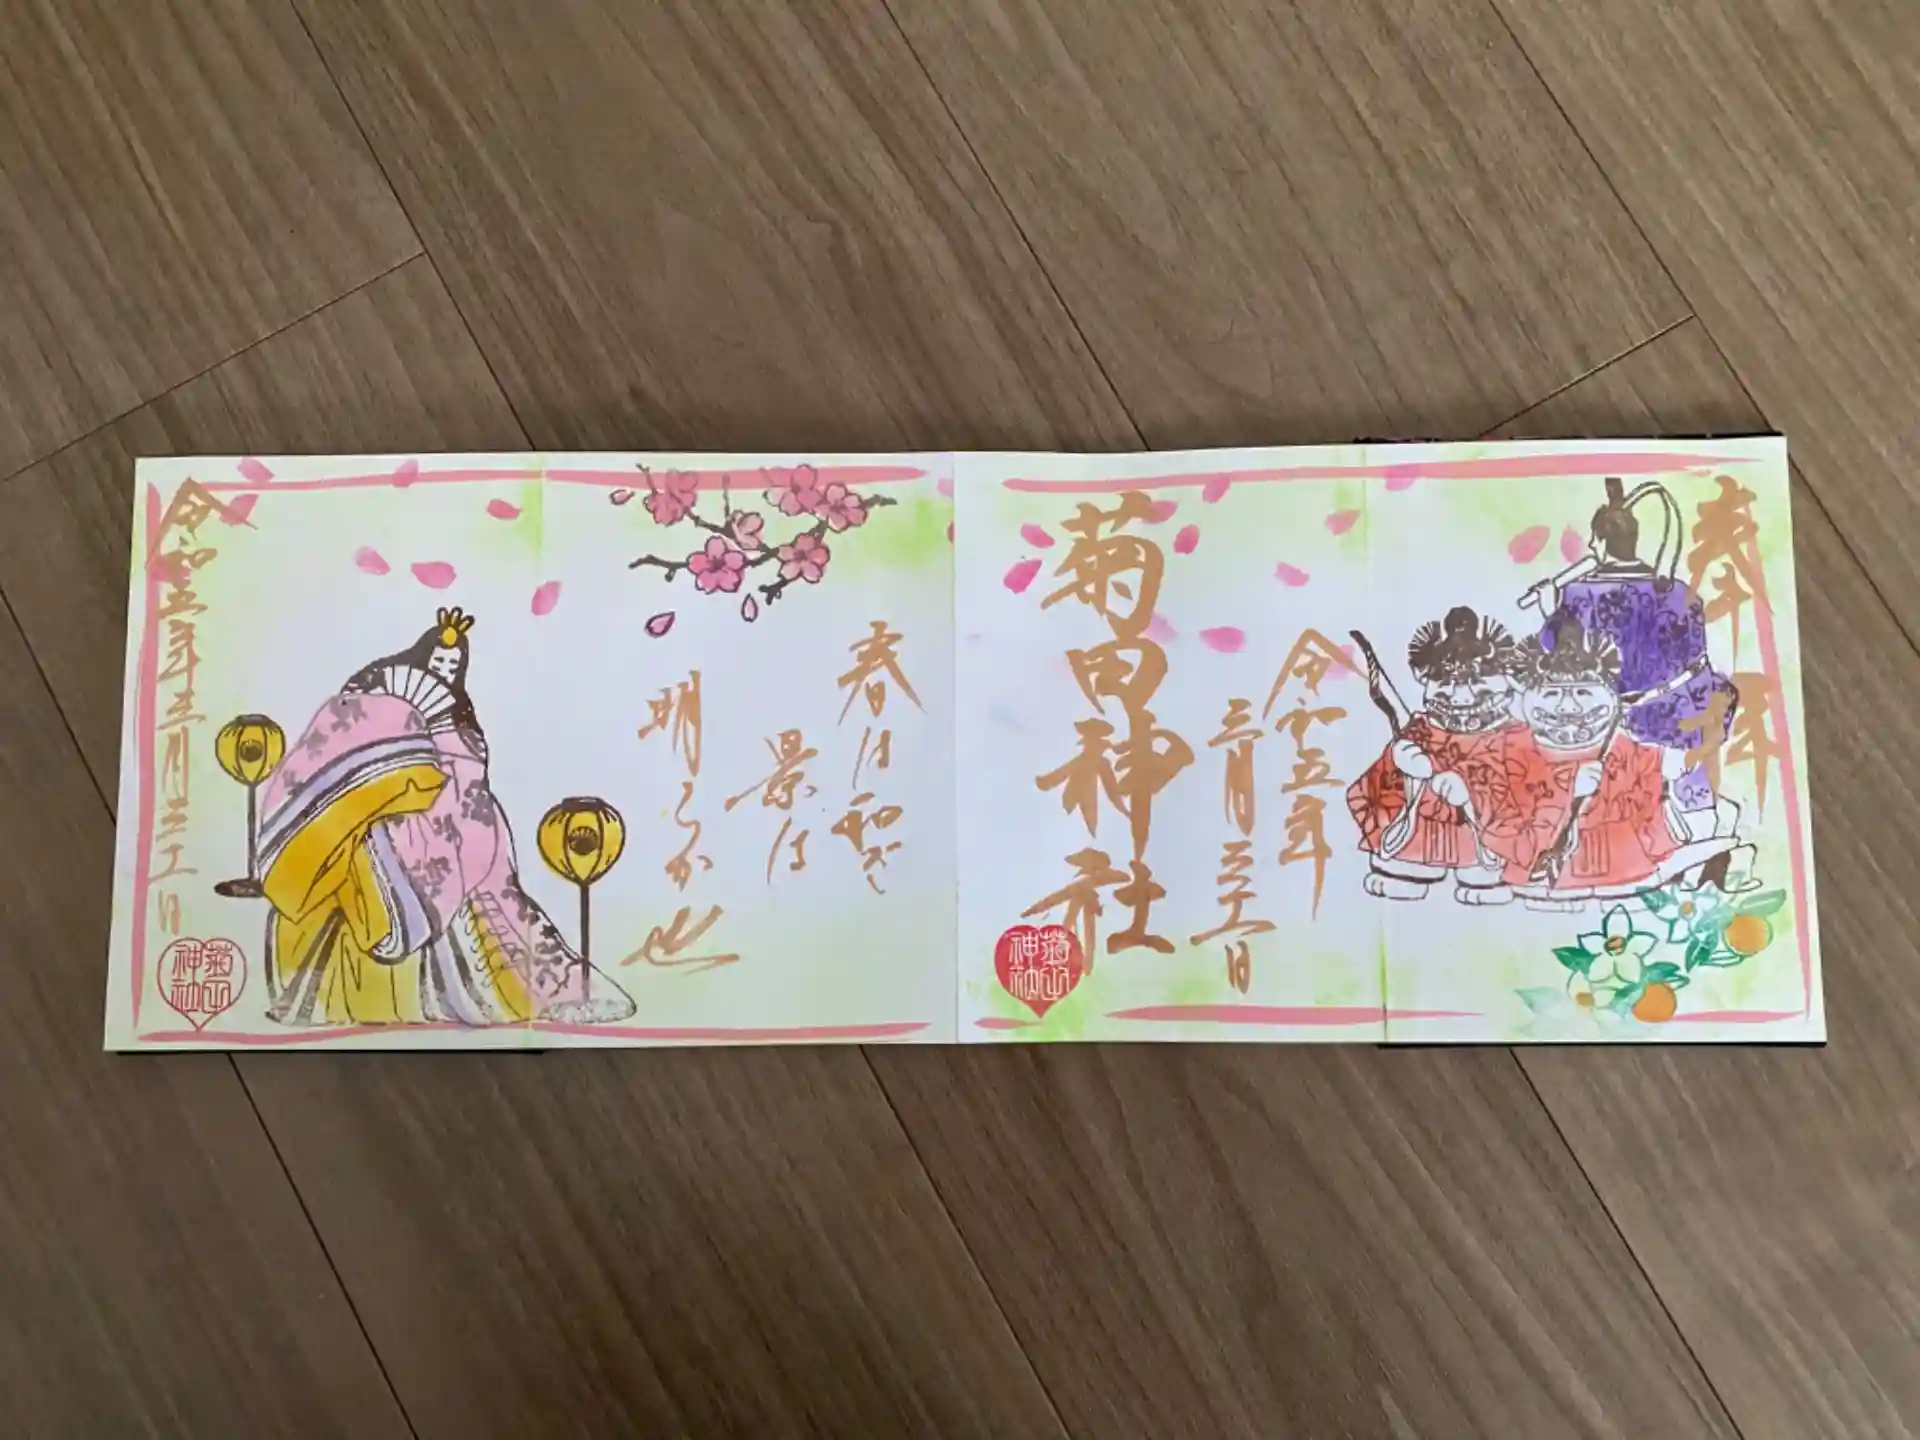 奉拝
令和五年
三月三十一日
菊田神社
菊田
神社
春は和ぎ
景は
明らか
也
令和五年三月三十一日
菊田
神社